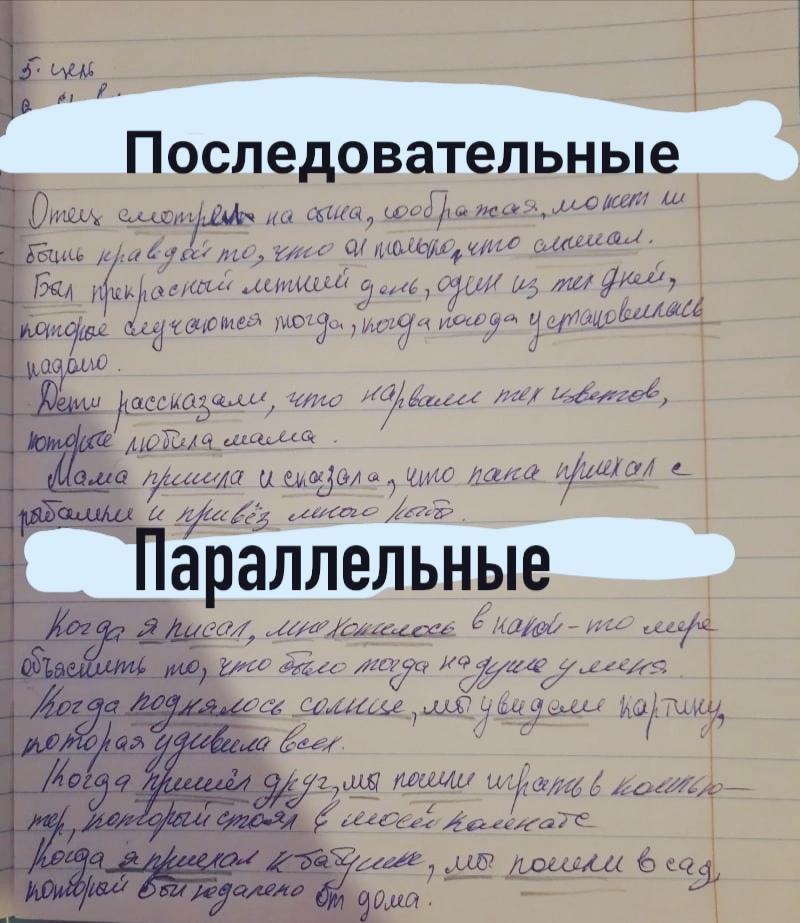 5. цель
Последовательные
Отец смотрел на сына, соображая, может ли
быть правдой то, что он только, что слышал.
Был прекрасный летний день, один из тех дней,
которые случаются тогда, когда погода установилась
надолго.
Дети рассказали, что нарвали тех цветов,
которые любила мама.
Мама пришла и сказала, что папа приехал с
рыбалки и привёз много рыбы.
Параллельные
Когда я писал, мне хотелось в какой-то мере
объяснить то, что было тогда на душе у меня.
Когда поднялось солнце, мы увидели картину,
которая удивила всех.
Когда пришёл друг, мы пошли играть в компью-
тер, который стоял в моей комнате
Когда я приехал к бабушке, мы пошли в сад,
который был недалеко от дома.